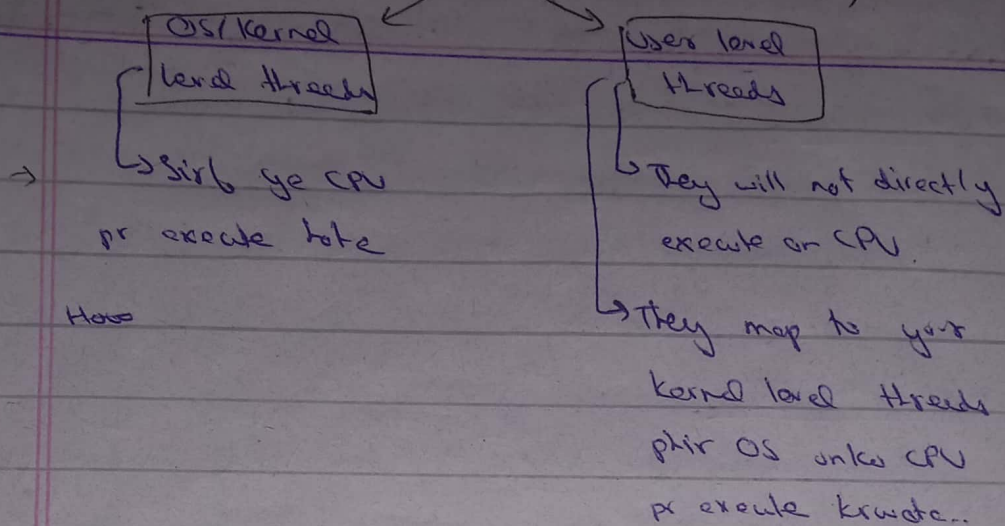 OS/Kernel
level threads
→ Sirf ye CPU
pr execute hote
How
User level
threads
They will not directly
execute on CPU.
They map to your
kernel level threads
phir OS unko CPU
pr execute krwata..